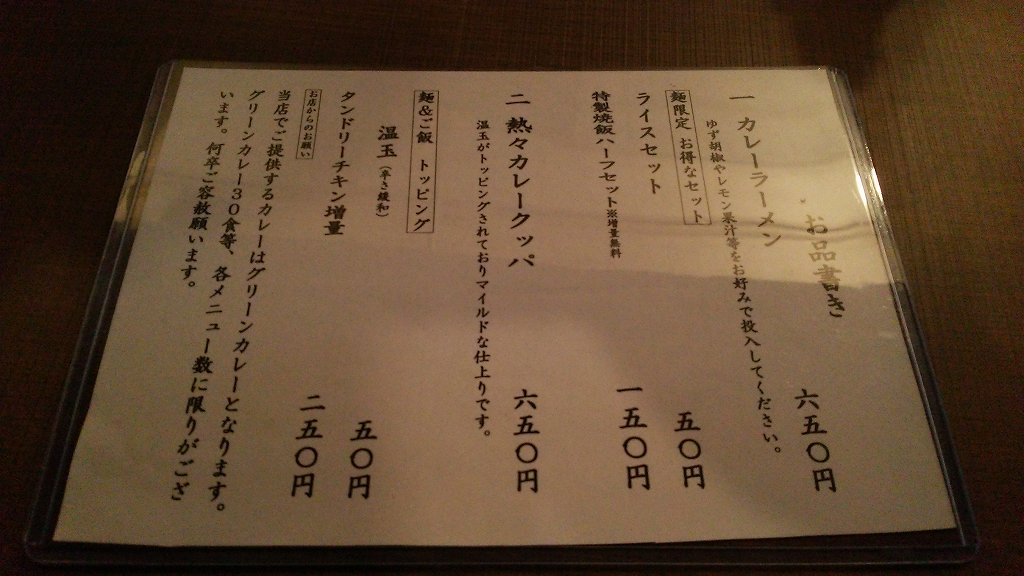 お品書き
一 カレーラーメン 六五〇円
ゆず胡椒やレモン果汁等をお好みで投入してください。
麺限定 お得なセット
ライスセット 五〇円
特製焼飯ハーフセット※増量無料 一五〇円
二 熱々カレークッパ 六五〇円
温玉がトッピングされておりマイルドな仕上りです。
麺&ご飯 トッピング
温玉（辛さ緩和） 五〇円
タンドリーチキン増量 二五〇円
お店からのお願い
当店でご提供するカレーはグリーンカレーとなります。
グリーンカレー30食等、各メニュー数に限りがござ
います。何卒ご容赦願います。